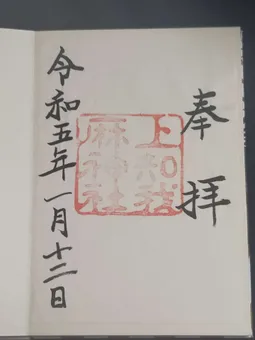 奉拝
上知我
麻神社
令和五年一月十二日